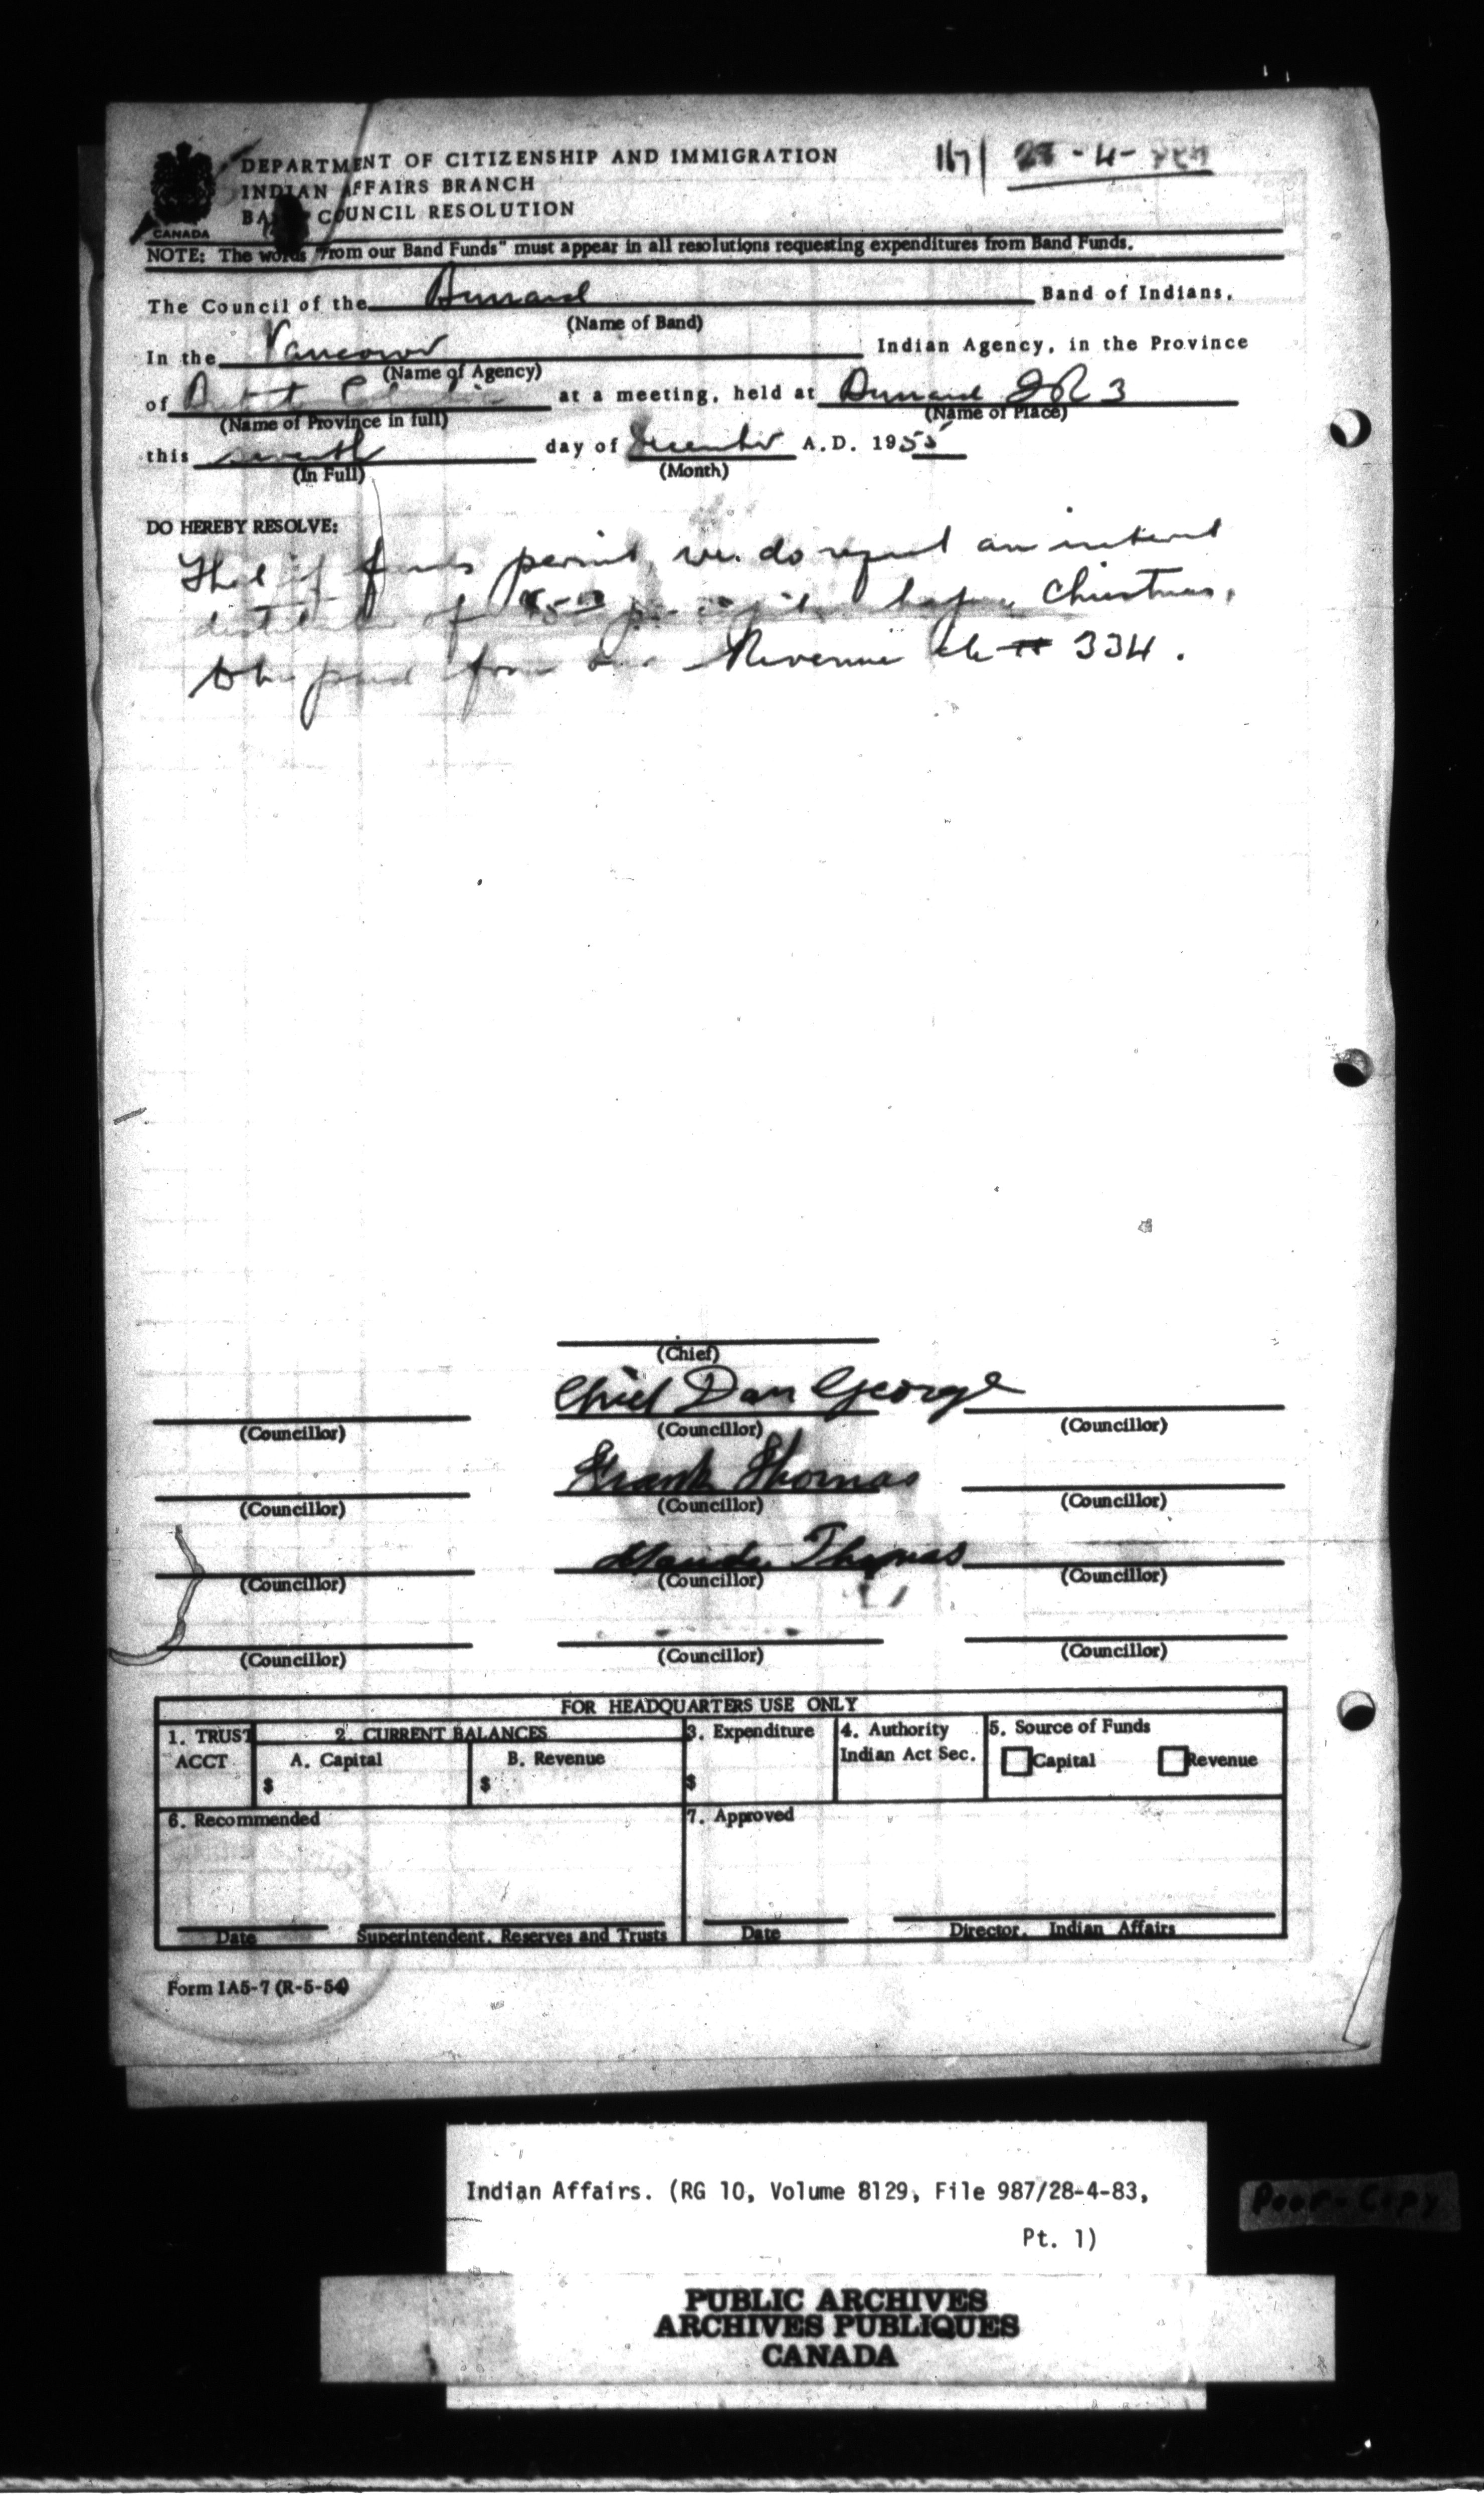 DEPARTMENT OF CITIZENSHIP AND IMMIGRATION
INDIAN AFFAIRS BRANCH
BAND COUNCIL RESOLUTION
167 28-4-
CANADA
NOTE: The words "From our Band Funds" must appear in all resolutions requesting expenditures from Band Funds.
The Council of the Burrard Band of Indians,
(Name of Band)
In the Vancouver Indian Agency, in the Province
(Name of Agency)
of British Columbia at a meeting, held at Burrard IR 3
(Name of Province in full) (Name of Place)
this seventh day of December A.D. 1955
(In Full) (Month)
DO HEREBY RESOLVE:
That if funds permit, we do request an interest
distribution of per capita before Christmas,
to be paid from our Revenue # 334.
(Chief)
Chief Dan George
(Councillor) (Councillor) (Councillor)
Frank Thomas
(Councillor) (Councillor) (Councillor)
Thomas
(Councillor) (Councillor) (Councillor)
(Councillor) (Councillor) (Councillor)
FOR HEADQUARTERS USE ONLY
1. TRUST ACCT 2. CURRENT BALANCES 3. Expenditure 4. Authority Indian Act Sec. 5. Source of Funds
A. Capital B. Revenue Capital Revenue
$ $ $
6. Recommended 7. Approved
Date Superintendent, Reserves and Trusts Date Director, Indian Affairs
Form 1A5-7 (R-5-54)
Indian Affairs. (RG 10, Volume 8129, File 987/28-4-83,
Pt. 1)
Poor-Copy
PUBLIC ARCHIVES
ARCHIVES PUBLIQUES
CANADA